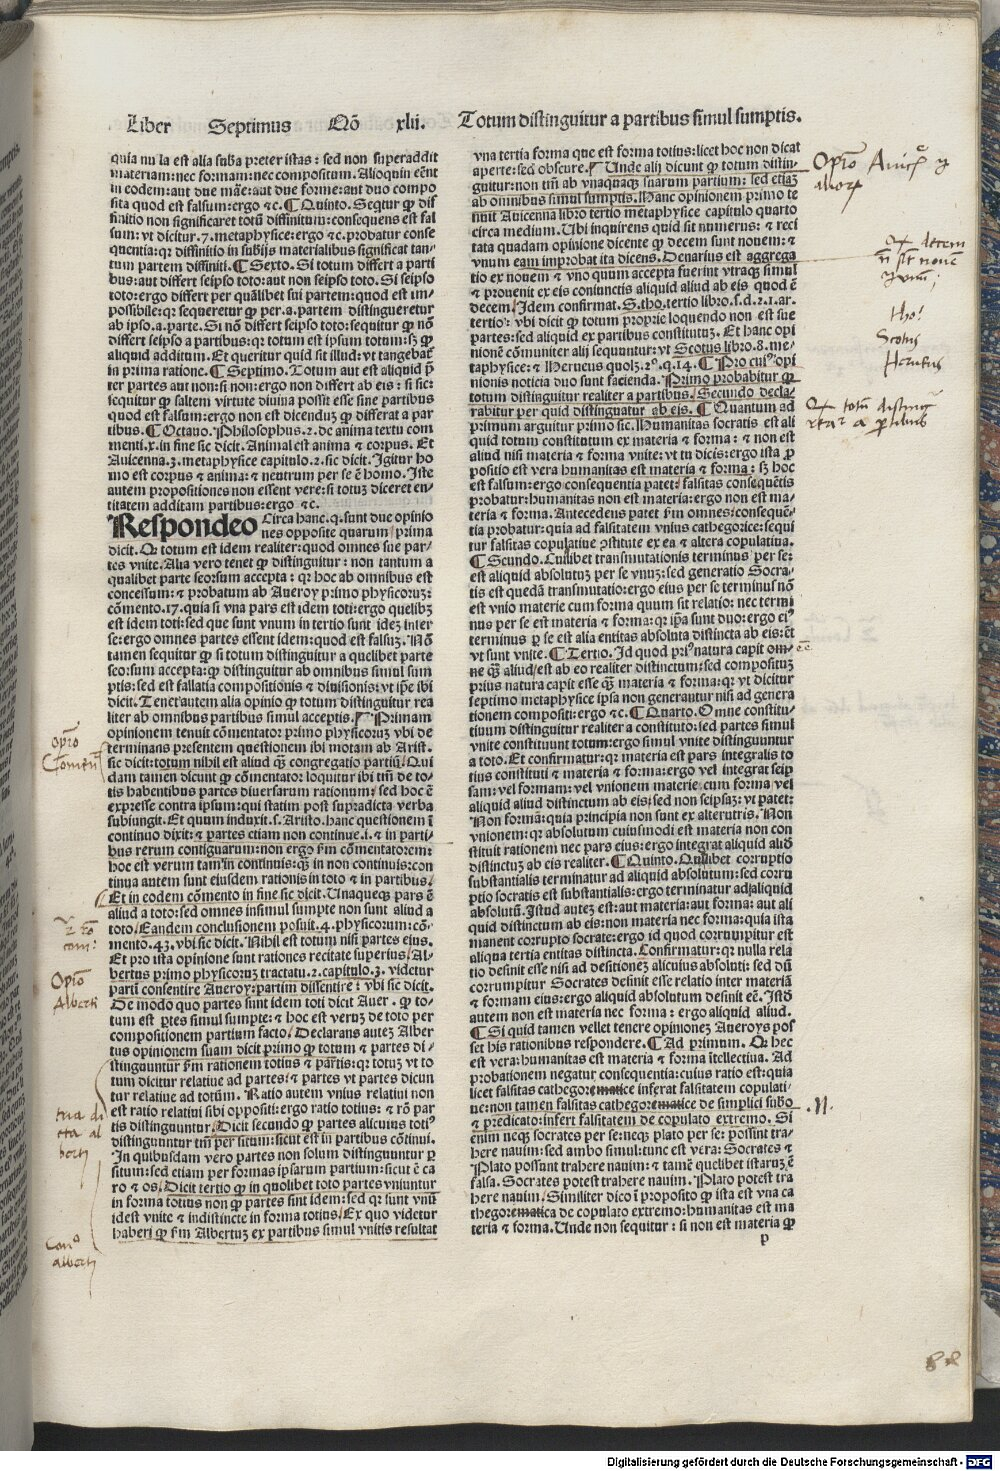 Liber Septimus Nõ xlii. Totum distinguitur a partibus simul sumptis.
quia nulla est alia suba preter istas: sed non superaddit
materiam: nec formam: nec compositum. Alioquin eēnt
in eodem: aut due māe: aut due forme: aut duo compo
sita quod est falsum: ergo ⁊c. ¶ Quinto. Seqtur ꝙ dif
finitio non significaret totū diffinitum: consequens est fal
sum: vt dicitur .7. metaphysice: ergo ⁊c. probatur conse
quentia: qr diffinitio in subijs materialibus significat tan/
tum partem diffiniti. ¶ Sexto. Si totum differt a parti
bus: aut differt seipso toto: aut non seipso toto. Si seipso
toto: ergo differt per quālibet sui partem: quod est im/
possibile: qr sequeretur ꝙ per .a. partem distingueretur
ab ipso .a. parte. Si nō differt seipso toto: sequitur ꝙ nō
differt seipso a partibus: qr totum est ipsum totum: sꝫ ꝙ
aliquid additum. Et queritur quid sit illud: vt tangebat
in prima ratione. ¶ Septimo. Totum aut est aliquid p̄
ter partes aut non: si non: ergo non differt ab eis: si sic:
sequitur ꝙ saltem virtute diuina possit esse sine partibus
quod est falsum: ergo non est dicenduꝫ ꝙ differat a par
tibus. ¶ Octauo. Philosophus .2. de anima textu com
menti .x. in fine sic dicit. Animal est anima ⁊ corpus. Et
Auicenna .3. metaphysice capitulo .2. sic dicit. Igitur ho
mo est corpus ⁊ anima: ⁊ neutrum per se ē homo. Iste
autem propositiones non essent vere: si totuꝫ diceret en/
titatem additam partibus: ergo ⁊c.
Respondeo Circa hanc .q. sunt due opinio
nes opposite quarum prima
dicit. Qꝫ totum est idem realiter: quod omnes sue par/
tes vnite. Alia vero tenet ꝙ distinguitur: non tantum a
qualibet parte seorsum accepta: qr hoc ab omnibus est
concessum: ⁊ probatum ab Aueroy primo physicoruꝫ:
cōmento .17. quia si vna pars est idem toti: ergo quelibꝫ
est idem toti: sed que sunt vnum in tertio sunt ideꝫ inter
se: ergo omnes partes essent idem: quod est falsuꝫ. Nō
tamen sequitur ꝙ si totum distinguitur a quelibet parte
seorsum accepta: ꝙ distinguitur ab omnibus simul sum
ptis: sed est fallatia compositionis ⁊ diuisionis: vt ip̄e ibi
dicit. Tenet autem alia opinio ꝙ totum distinguitur rea
liter ab omnibus partibus simul acceptis. ¶ Primam
opinionem tenuit cōmentator primo physicoruꝫ vbi de
terminans presentem questionem ibi motam ab Arist.
sic dicit: totum nihil est aliud qꝫ congregatio partiū. Qui
dam tamen dicunt ꝙ cōmentator loquitur ibi tm̄ de to/
tis habentibus partes diuersarum rationum: sed hoc ē
expresse contra ipsum: qui statim post supradicta verba
subiungit. Et quum induxit .s. Aristo. hanc questionem ī
continuo dixit: ⁊ partes etiam non continue .i. ⁊ in parti/
bus rerum contiguarum: non ergo fm cōmentatorem:
hoc est verum tam in continuis: qꝫ in non continuis: con
tinua autem sunt eiusdem rationis in toto ⁊ in partibus.
Et in eodem cōmento in fine sic dicit. Unaqueqꝫ pars ē
aliud a toto: sed omnes insimul sumpte non sunt aliud a
toto. Eandem conclusionem posuit .4. physicorum: cō/
mento .43. vbi sic dicit. Nihil est totum nisi partes eius.
Et pro ista opinione sunt rationes recitate superius. Al/
bertus primo physicoruꝫ tractatu .2. capitulo .3. videtur
partū consentire Aueroy: partim dissentire: vbi sic dicit.
De modo quo partes sunt idem toti dicit Auer. ꝙ to/
tum est ptes simul sumpte: ⁊ hoc est veruꝫ de toto per
compositionem partium facto. Declarans auteꝫ Alber
tus opinionem suam dicit primo ꝙ totum ⁊ partes di/
stinguuntur fm rationem totius ⁊ partis: qr totuꝫ vt to
tum dicitur relatiue ad partes: ⁊ partes vt partes dicun
tur relatiue ad totum. Ratio autem vnius relatiui non
est ratio relatiui sibi oppositi: ergo ratio totius: ⁊ rō par
tis distinguuntur. Dicit secundo ꝙ partes alicuius toti9
distinguuntur tm̄ per situm: sicut est in partibus cōtinui.
In quibusdam vero partes non solum distinguuntur p
situm: sed etiam per formas ipsarum partium: sicut ē ca
ro ⁊ os. Dicit tertio ꝙ in quolibet toto partes vniuntur
in forma totius non ꝙ partes sint idem: sed qr sunt vnū
idest vnite ⁊ indistincte in forma totius. Ex quo videtur
haberi ꝙ fm Albertuꝫ ex partibus simul vnitis resultat
vna tertia forma que est forma totius: licet hoc non dicat
aperte: sed obscure. ¶ Unde alij dicunt ꝙ totum distin/
guitur: non tm̄ ab vnaquaqꝫ suarum partium: sed etiaꝫ
ab omnibus simul sumptis. Hanc opinionem primo te
nuit Auicenna libro tertio metaphysice capitulo quarto
circa medium. Ubi inquirens quid sit numerus: ⁊ reci
tata quadam opinione dicente ꝙ decem sunt nouem: ⁊
vnum eam improbat ita dicens. Denarius est aggrega
tio ex nouem ⁊ vno quum accepta fuerint vtraqꝫ simul
⁊ prouenit ex eis coniunctis aliquid aliud ab eis quod ē
decem. Idem confirmat. S. tho. tertio libro .s. d. 2. 1. ar.
tertio: vbi dicit ꝙ totum proprie loquendo non est sue
partes: sed aliquid ex partibus constitutuꝫ. Et hanc opi
nionē cōmuniter alij sequuntur: vt Scotus libro .8. me/
taphysice: ⁊ Herueus quol3. 2º. q. 14. ¶ Pro cui9 opi
nionis noticia duo sunt facienda. Primo probabitur ꝙ
totum distinguitur realiter a partibus. Secundo decla/
rabitur per quid distinguatur ab eis. ¶ Quantum ad
primum arguitur primo sic. Humanitas socratis est ali
quid totum constitutum ex materia ⁊ forma: ⁊ non est
aliud nisi materia ⁊ forma vnite: vt tu dicis: ergo ista p
positio est vera humanitas est materia ⁊ forma: sꝫ hoc
est falsum: ergo consequentia patet: falsitas consequētis
probatur: humanitas non est materia: ergo non est ma/
teria ⁊ forma. Antecedens patet fm omnes: consequē/
tia probatur: quia ad falsitatem vnius cathegorice: sequi
tur falsitas copulatiue ꝯstitute ex ea ⁊ altera copulatiua.
¶ Scundo. Cuilibet transmutationis terminus per se:
est aliquid absolutuꝫ per se vnuꝫ: sed generatio Socra/
tis est quedā transmutatio: ergo eius per se terminus nō
est vnio materie cum forma quum sit relatio: nec termi
nus per se est materia ⁊ forma: qr ip̄a sunt duo: ergo ei9
terminus p se est alia entitas absoluta distincta ab eis: ēt
vt sunt vnite. ¶ Tertio. Id quod pri9 natura capit om/
ne qꝫ aliud: est ab eo realiter distinctum: sed compositum
prius natura capit esse qꝫ materia ⁊ forma: qr vt dicitur
septimo metaphysice ipsa non generantur nisi ad genera
tionem compositi: ergo ⁊c. ¶ Quarto. Omne constitu/
tiuum distinguitur realiter a constituto: sed partes simul
vnite constituunt totum: ergo simul vnite distinguuntur
a toto. Et confirmatur: qr materia est pars integralis to
tius constituti ⁊ materia ⁊ forma: ergo vel integrat seip
sam: vel formam: vel vnionem materie cum forma vel
aliquid aliud distinctum ab eis: sed non seipsaꝫ: vt patet:
Non formā: quia principia non sunt ex alterutris. Non
vnionem: qr absolutum cuiusmodi est materia non con
stituit rationem nec pars eius: ergo integrat aliquid aliud
distinctuꝫ ab eis realiter. ¶ Quinto. Quilibet corruptio
substantialis terminatur ad aliquid absolutum: sed corru
ptio socratis est substantialis: ergo terminatur ad aliquid
absolutū. Istud auteꝫ est: aut materia: aut forma: aut ali
quid distinctum ab eis: non materia nec forma: quia ista
manent corrupto socrate: ergo id quod corrumpitur est
aliqua tertia entitas distincta. Confirmatur: qr nulla rela
tio desinit esse nisi ad desitioneꝫ alicuius absoluti: sed dū
corrumpitur Socrates desinit esse relatio inter materiā
⁊ formam eius: ergo aliquid absolutum desinit eē. Istd
autem non est materia nec forma: ergo aliquid aliud.
¶ Si quid tamen vellet tenere opinioneꝫ Aueroys pos
set his rationibus respondere. ¶ Ad primum. Qꝫ hec
est vera: humanitas est materia ⁊ forma ītellectiua. Ad
probationem negatur consequentia: cuius ratio est: quia
licet falsitas cathegorematice inferat falsitatem copulati/
ue: non tamen falsitas cathegorematice de simplici subo
⁊ predicato: infert falsitatem de copulato extremo. Si
enim neqꝫ socrates per se: neqꝫ plato per se: possint tra/
here nauim: sed ambo simul: tunc est vera: Socrates ⁊
Plato possunt trahere nauim: ⁊ tamē quelibet istaruꝫ ē
falsa. Socrates potest trahere nauim. Plato potest tra
here nauim. Similiter dico ī proposito ꝙ ista est vna ca
thegorematica de copulato extremo: humanitas est ma
teria ⁊ forma. Unde non sequitur: si non est materia ꝙ
p
opīo
Comen̄
Opīo
Alberti
Opīo Auicē ⁊
alior
tho:
Scotus
Herueus
.n.
88
Digitalisierung gefördert durch die Deutsche Forschungsgemeinschaft - DFG